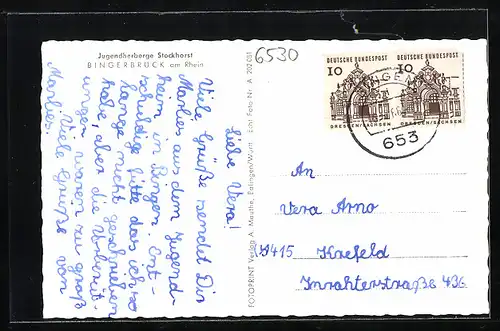 Jugendherberge Stockhorst
BINGERBRÜCK am Rhein
6530
Liebe Vera!
Viele Grüße sendet Dir
Marlies aus dem Jugend-
heim in Bingen. Ent-
schuldige bitte das ich so
lange nicht geschrieben
habe, aber die Vorbereit-
ungen waren zu groß
Viele Grüße von
Marlies.
FOTOPRINT Verlag A. Mauthe, Esslingen/Württ. Echt Foto Nr. A 202 051
DEUTSCHE BUNDESPOST
10
DRESDEN/SACHSEN
DEUTSCHE BUNDESPOST
10
DRESDEN/SACHSEN
653
An
Vera Arno
415 Krefeld
Inrahterstraße 436